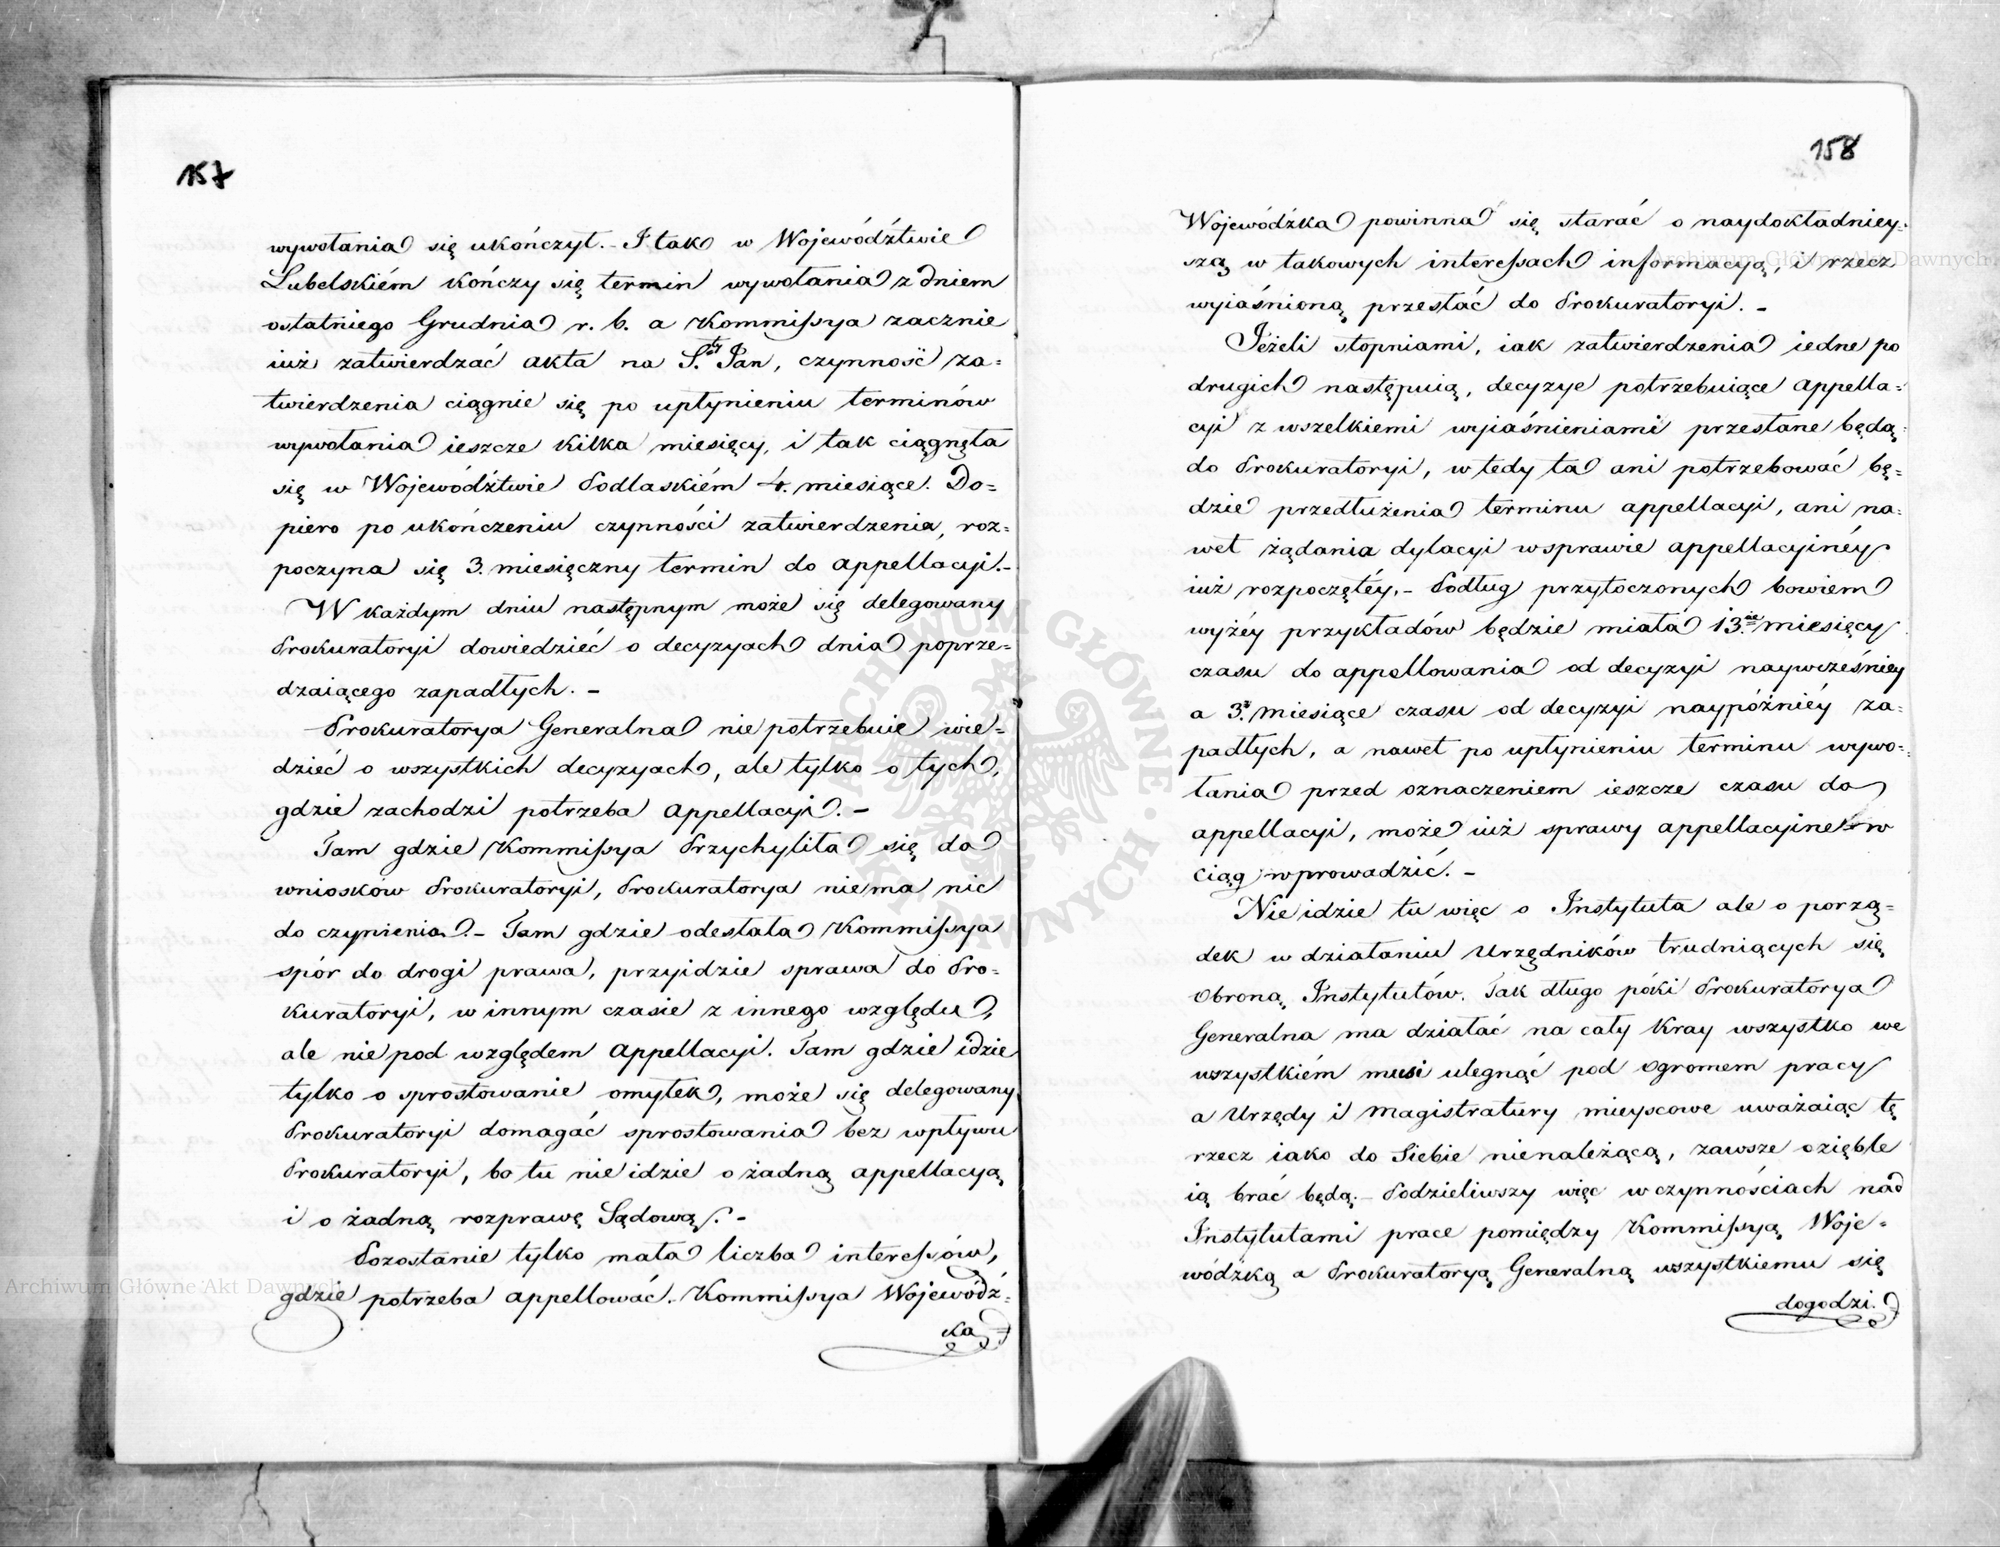 157
wywołania się ukończył. - I tak w Województwie
Lubelskiém kończy się termin wywołania z dniem
ostatniego Grudnia r. b. a Kommissya zacznie
iuż zatwierdzać akta na S.ty Jan, czynność za=
twierdzenia ciągnie się po upłynieniu terminów
wywołania ieszcze kilka miesięcy, i tak ciągnęła
się w Województwie Podlaskiém 4. miesiące. Do=
piero po ukończeniu czynności zatwierdzenia, roz=
poczyna się 3. miesięczny termin do appellacyi. -
W każdym dniu następnym może się delegowany
Prokuratoryi dowiedzieć o decyzyach dnia poprze=
dzaiącego zapadłych. -
Prokuratorya Generalna nie potrzebuie wie=
dzieć o wszystkich decyzyach, ale tylko o tych,
gdzie zachodzi potrzeba appellacyi. -
Tam gdzie Kommissya Przychyliła się do
wniosków Prokuratoryi, Prokuratorya niema nic
do czynienia. - Tam gdzie odesłała Kommissya
spór do drogi prawa, przyidzie sprawa do Pro=
kuratoryi, w innym czasie z innego względu,
ale nie pod względem appellacyi. Tam gdzie idzie
tylko o sprostowanie omyłek, może się delegowany
Prokuratoryi domagać sprostowania bez wpływu
Prokuratoryi, bo tu nie idzie o żadną appellacyą
i o żadną rozprawę Sądową. -
Pozostanie tylko mała liczba interessów,
gdzie potrzeba appellować. Kommissya Wojewódz=
ka
158
Wojewódzka powinna się starać o naydokładniey=
szą w takowych interessach informacyą, i rzecz
wyiaśnioną przesłać do Prokuratoryi. -
Jeżeli stopniami, iak zatwierdzenia iedne po
drugich następuią, decyzye potrzebuiące appella=
cyi z wszelkiemi wyiaśnieniami przesłane będą
do Prokuratoryi, wtedy ta ani potrzebować bę=
dzie przedłużenia terminu appellacyi, ani na=
wet żądania dylacyi w sprawie appellacyinéy
iuż rozpoczętéy. - Podług przytoczonych bowiem
wyżéy przykładów będzie miała 13.ie miesięcy
czasu do appellowania od decyzyi naywcześniey
a 3. miesiące czasu od decyzyi naypóźniéy za=
padłych, a nawet po upłynieniu terminu wywo=
łania przed oznaczeniem ieszcze czasu do
appellacyi, może iuż sprawy appellacyine w
ciąg wprowadzić. -
Nie idzie tu więc o Instytuta ale o porzą=
dek w działaniu Urzędników trudniących się
Obroną Instytutów. Tak długo póki Prokuratorya
Generalna ma działać na cały Kray wszystko we
wszystkiém musi ulegnąć pod ogromem pracy
a Urzędy i Magistratury mieyscowe uważaiąc tę
rzecz iako do Siebie nienależącą, zawsze ozięble
ią brać będą. - Podzieliwszy więc w czynnościach nad
Instytutami prace pomiędzy Kommissyą Woje=
wódzką a Prokuratoryą Generalną wszystkiemu się
dogodzi.
Archiwum Główne Akt Dawnych
Archiwum Główne Akt Dawnych
ARCHIWUM GŁÓWNE AKT DAWNYCH